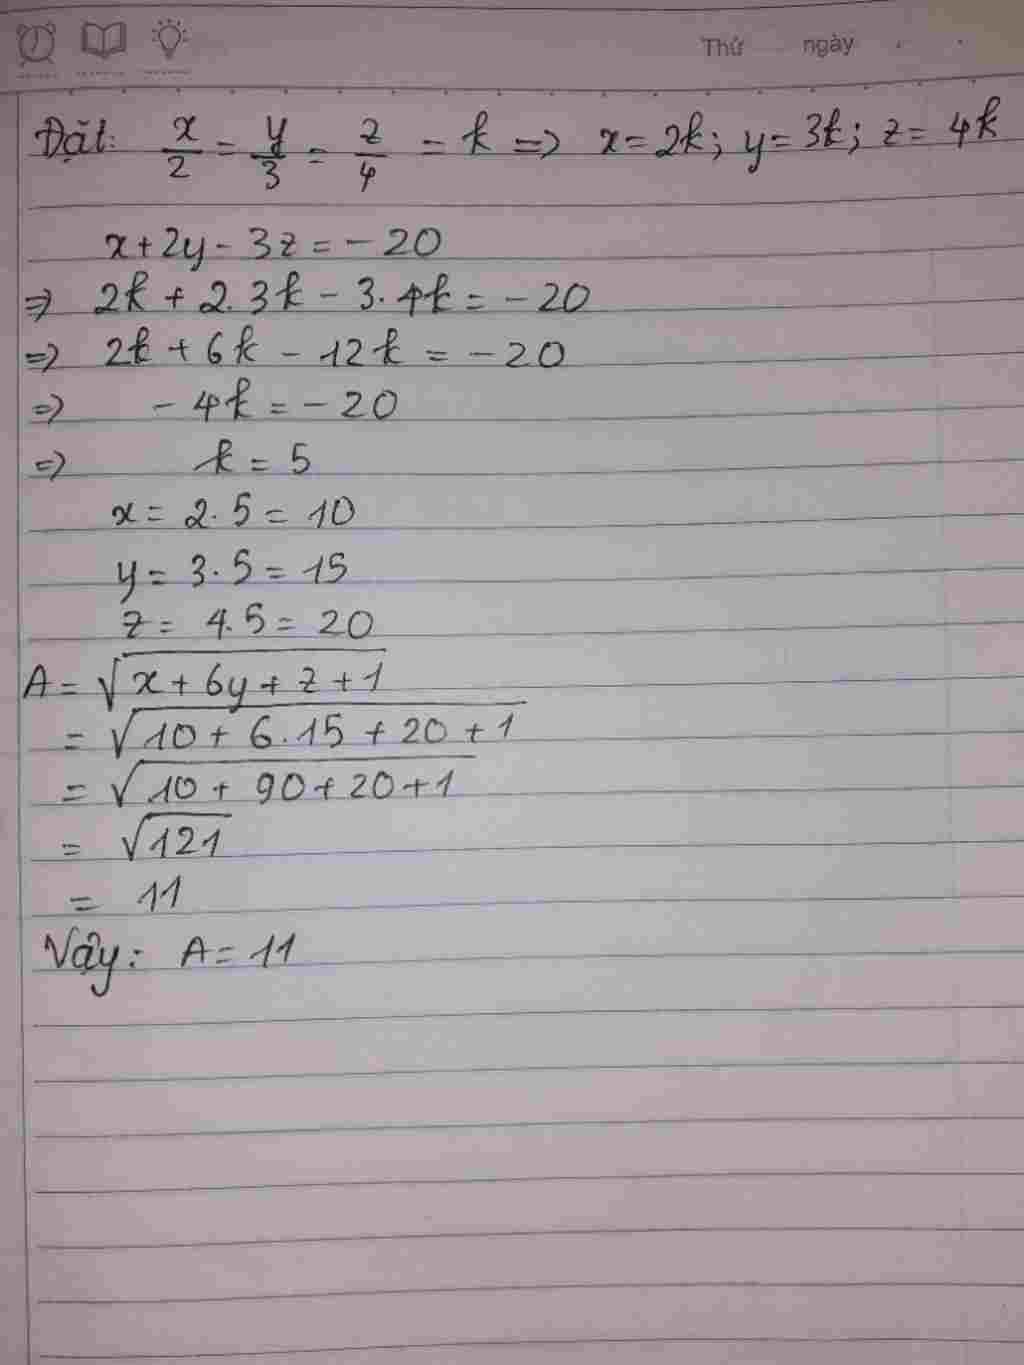 Thứ ngày
Đặt: x/2 = y/3 = z/4 = k => x = 2k; y = 3k; z = 4k
x + 2y - 3z = -20
=> 2k + 2.3k - 3.4k = -20
=> 2k + 6k - 12k = -20
=> -4k = -20
=> k = 5
x = 2.5 = 10
y = 3.5 = 15
z = 4.5 = 20
A = √(x + 6y + z + 1)
= √(10 + 6.15 + 20 + 1)
= √(10 + 90 + 20 + 1)
= √121
= 11
Vậy: A = 11